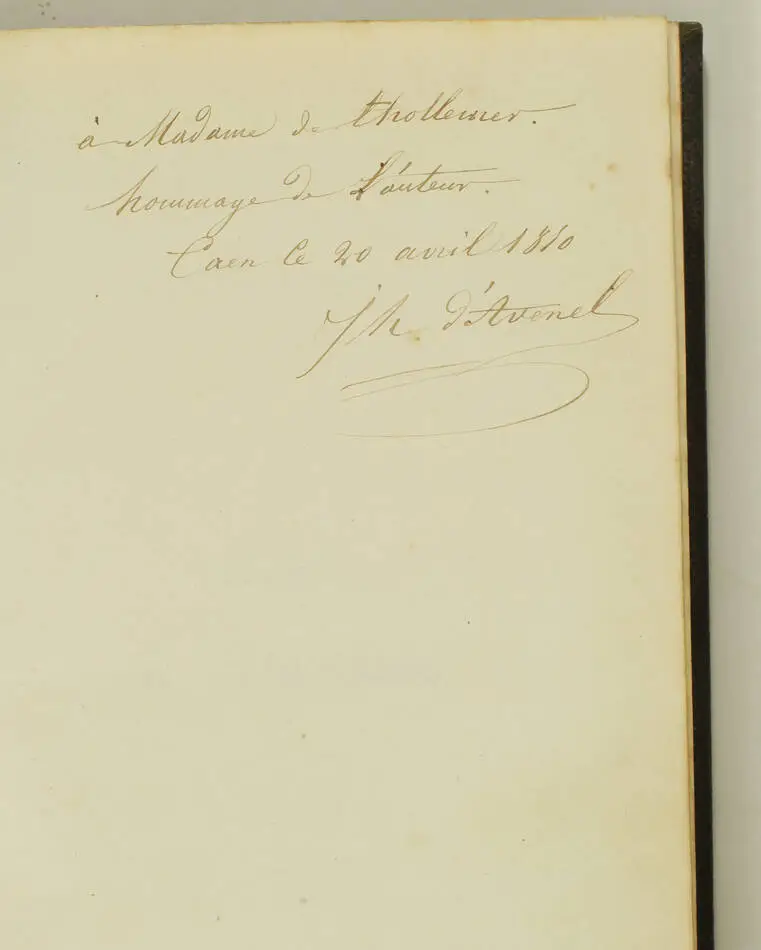 à Madame de thollemer.
hommage de l'auteur.
Caen le 20 avril 1850
Jh d'Avenel